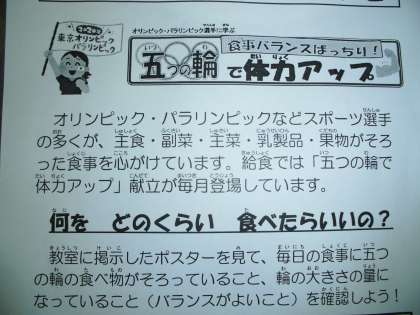 2020年
東京オリンピック
パラリンピック
オリンピック・パラリンピック選手に学ぶ
食事バランスばっちり!
五つの輪で体力アップ
オリンピック・パラリンピックなどスポーツ選手
の多くが、主食・副菜・主菜・乳製品・果物がそろ
った食事を心がけています。給食では「五つの輪で
体力アップ」献立が毎月登場しています。
何を どのくらい 食べたらいいの?
教室に掲示したポスターを見て、毎日の食事に五つ
の輪の食べ物がそろっていること、輪の大きさの量に
なっていること(バランスがよいこと)を確認しよう!